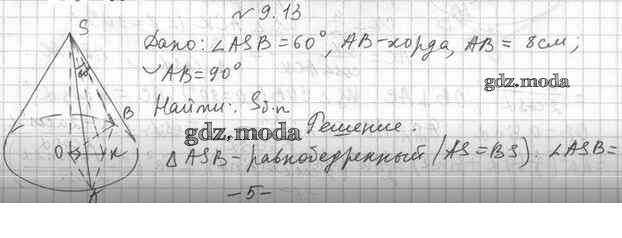 № 9.13
S
Дано: ∠ASB=60°, AB-хорда, AB = 8 см;
◡AB=90°
60°
gdz.moda
Найти: Sб.п
B
gdz.moda
Решение.
O
K
△ASB-равнобедренный (AS=BS). ∠ASB=
A
-5-